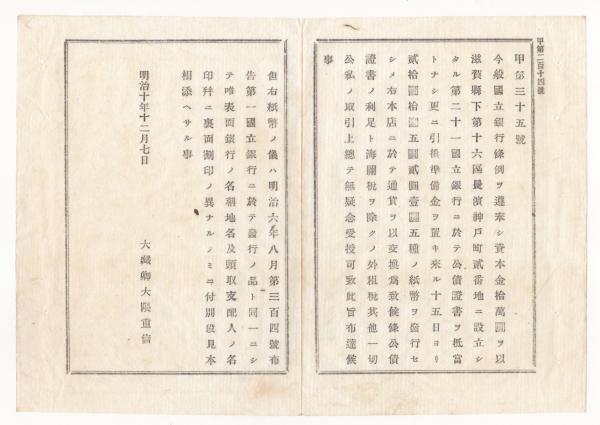 甲第二百十四號
甲第三十五號
今般國立銀行條例ヲ遵奉シ資本金拾萬圓ヲ以
滋賀縣下第十六區長濱神戸町貳番地ニ設立シ
タル第二十一國立銀行ニ於テ公債證書ヲ抵當
トナシ更ニ引換準備金ヲ置キ來ル十五日ヨリ
貳拾圓拾圓五圓貳圓壹圓五種ノ紙幣ヲ發行セ
シメ右本店ニ於テ通貨ヲ以交換爲致候條公債
證書ノ利足ト海關税ヲ除クノ外租税其他一切
公私ノ取引上總テ無疑念受授可致此旨布達候
事
但右紙幣ノ儀ハ明治六年八月第三百四號布
告第一國立銀行ニ於テ發行ノ品ト同一ニシ
テ唯表面銀行ノ名稱地名及頭取支配人ノ名
印幷ニ裏面割印ノ異ナルノミニ付別段見本
相添ヘサル事
明治十年十二月七日
大藏卿大隈重信